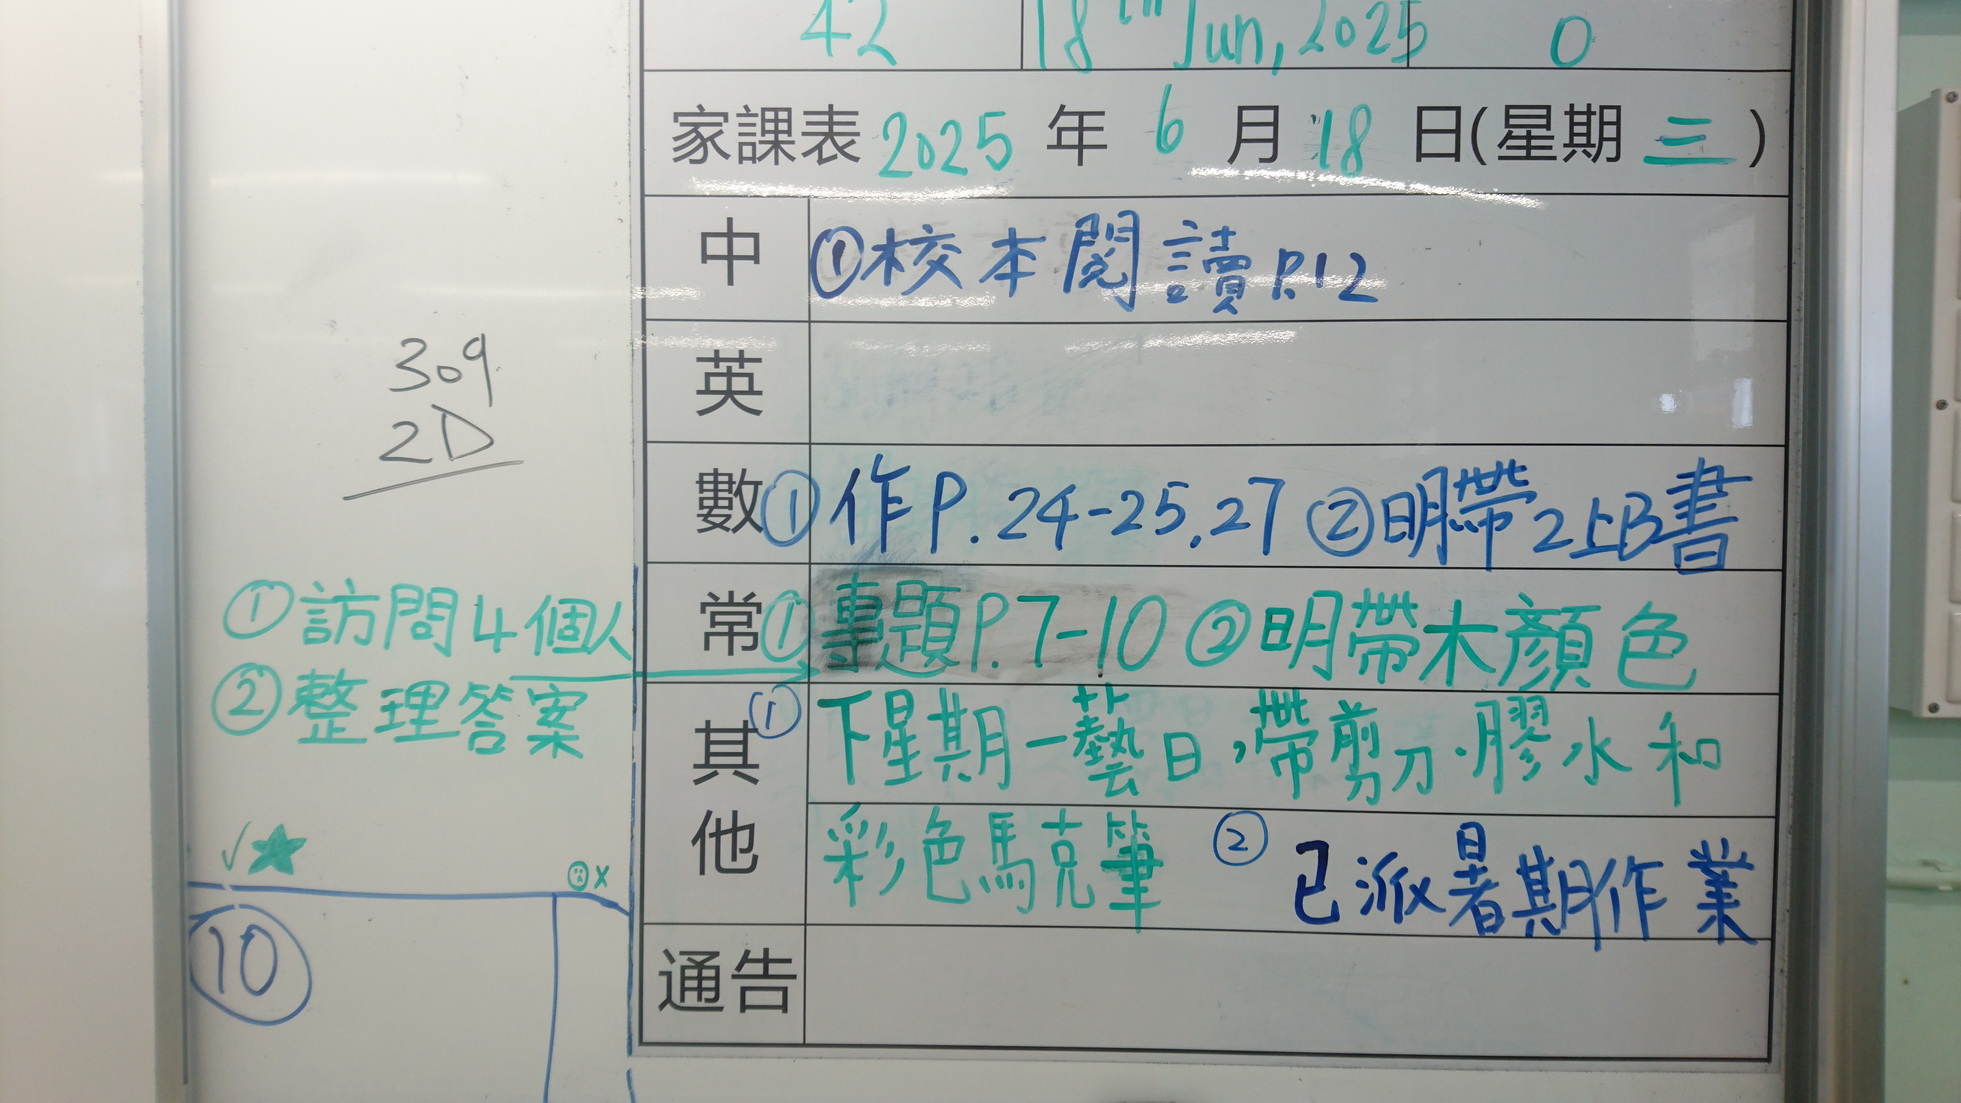 42 18th Jun, 2025 0
家課表 2025 年 6 月 18 日(星期 三 )
中 ①校本閱讀 P.12
英
數 ①作P.24-25,27 ②明帶2上B書
常 ①專題P.7-10 ②明帶木顏色
其他 ①下星期一藝日,帶剪刀.膠水和
彩色馬克筆 ②已派暑期作業
通告
309
2D
①訪問4個人
②整理答案
10